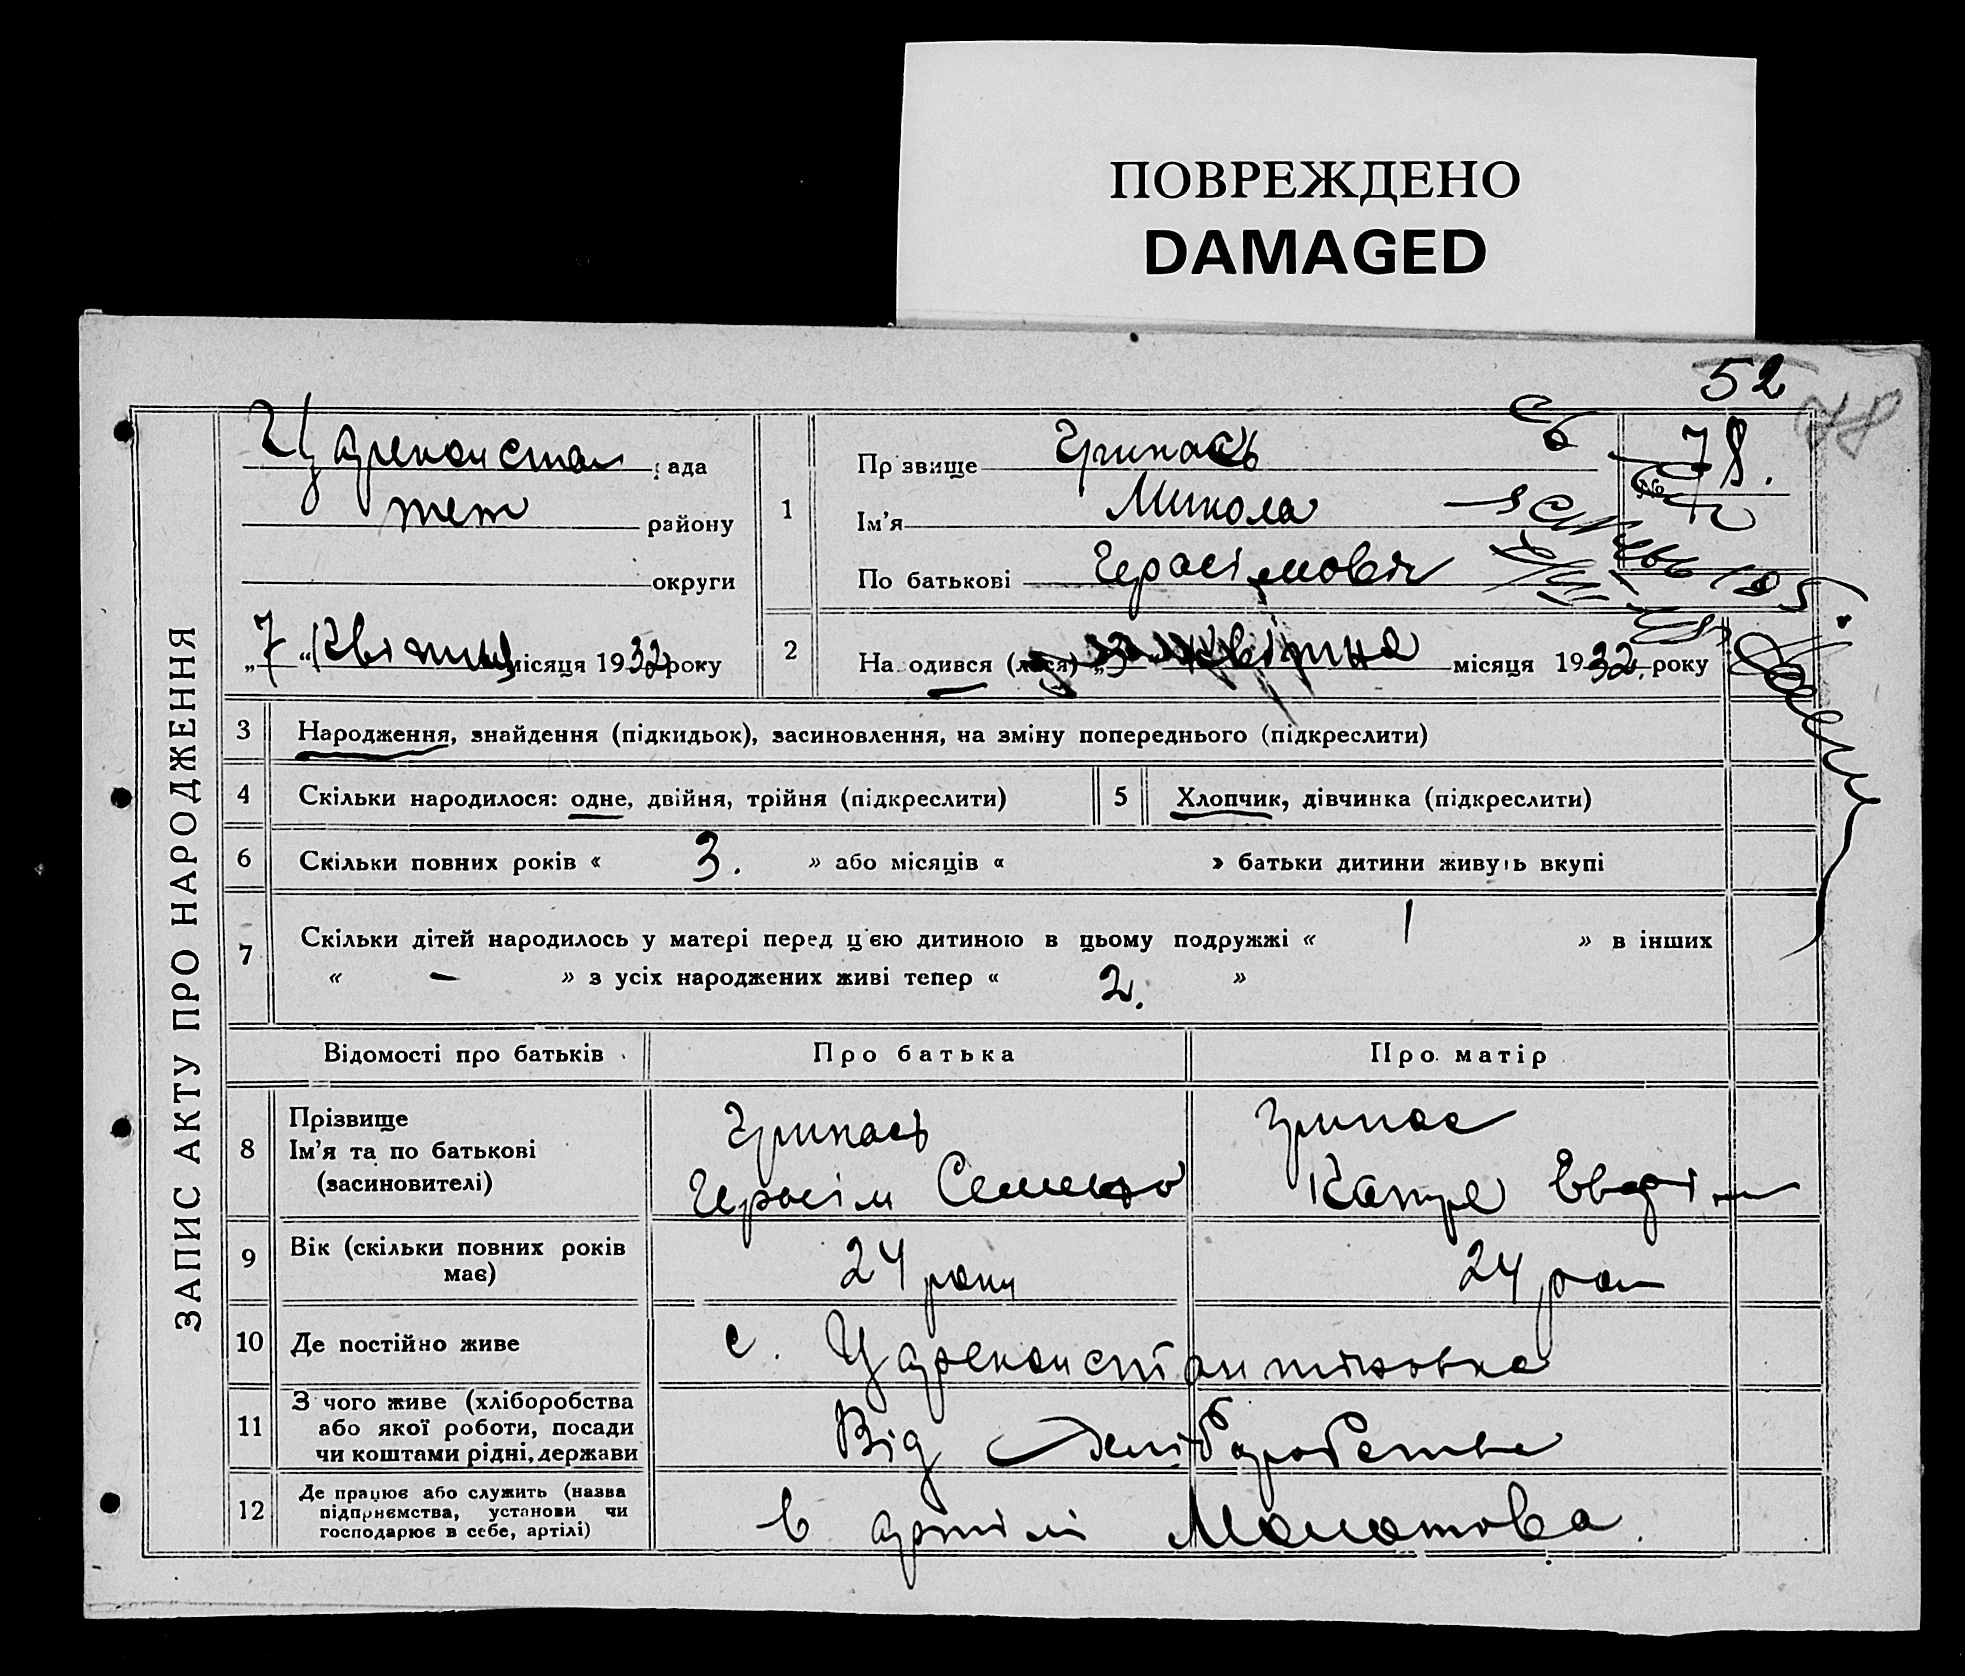 ПОВРЕЖДЕНО
DAMAGED
52
78
ЗАПИС АКТУ ПРО НАРОДЖЕННЯ
Цареконстан рада
тет району
округи
„7“ Квітня місяця 1932 року
1
Прізвище Грипась
Ім'я Микола
По батькові Герасімовіч
78.
2
Народився (лася) „3“ квітня місяця 1932. року
3 Народження, знайдення (підкидьок), засиновлення, на зміну попереднього (підкреслити)
4 Скільки народилося: одне, двійня, трійня (підкреслити) 5 Хлопчик, дівчинка (підкреслити)
6 Скільки повних років « 3. » або місяців « » батьки дитини живуть вкупі
7 Скільки дітей народилось у матері перед цією дитиною в цьому подружжі « 1 » в інших
« – » з усіх народжених живі тепер « 2. »
Відомості про батьків Про батька Про матір
8 Прізвище
Ім'я та по батькові
(засиновителі)
Грипась
Герасім Семено
Грипас
Катре
9 Вік (скільки повних років
має)
24 роки
24 рок
10 Де постійно живе с. Цареконстантіновка
11 З чого живе (хліборобства
або якої роботи, посади
чи коштами рідні, держави
Від хліборобства
12 Де працює або служить (назва
підприємства, установи чи
господарює в себе, артілі)
в артілі Молотова.